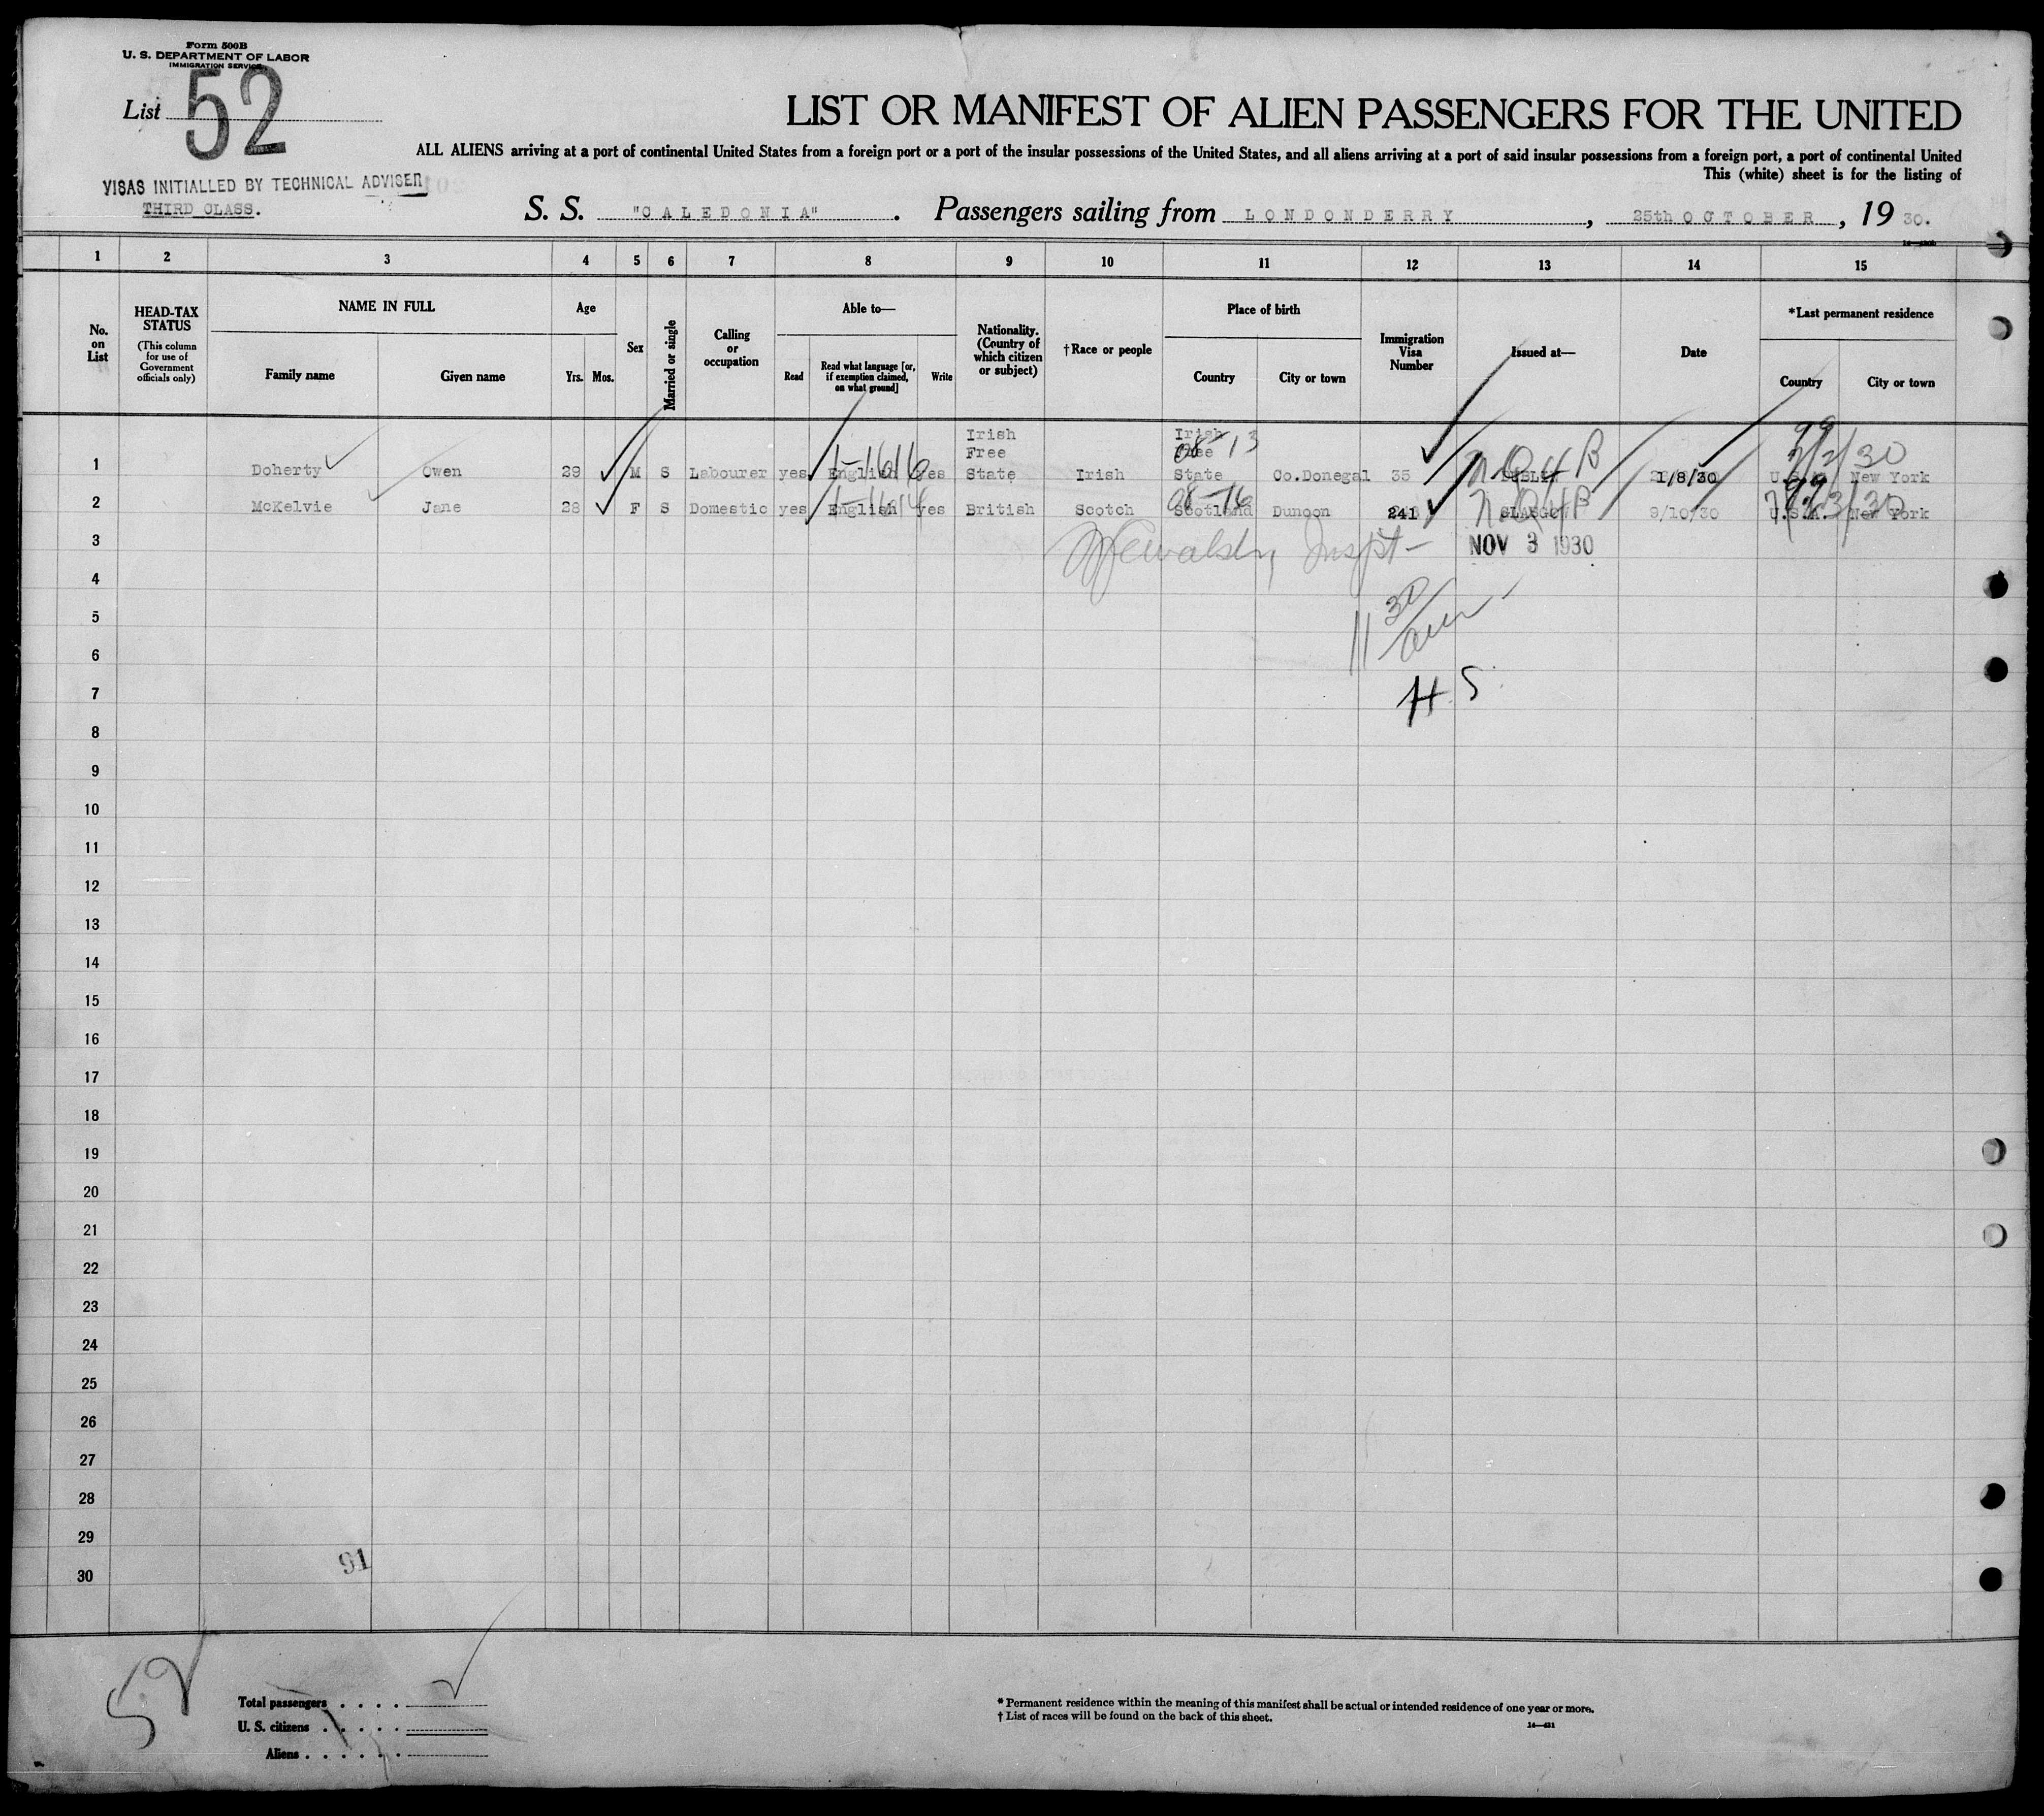 Form 500B
U. S. DEPARTMENT OF LABOR
IMMIGRATION SERVICE
List 52
LIST OR MANIFEST OF ALIEN PASSENGERS FOR THE UNITED
ALL ALIENS arriving at a port of continental United States from a foreign port or a port of the insular possessions of the United States, and all aliens arriving at a port of said insular possessions from a foreign port, a port of continental United
This (white) sheet is for the listing of
VISAS INITIALLED BY TECHNICAL ADVISER
THIRD CLASS.
S. S. "CALEDONIA". Passengers sailing from LONDONDERRY, 25th OCTOBER, 19 30.
1 2 3 4 5 6 7 8 9 10 11 12 13 14 15
No. on List
HEAD-TAX STATUS
(This column for use of Government officials only)
NAME IN FULL
Family name Given name
Age
Yrs. Mos.
Sex
Married or single
Calling or occupation
Able to—
Read
Read what language [or, if exemption claimed, on what ground]
Write
Nationality. (Country of which citizen or subject)
†Race or people
Place of birth
Country City or town
Immigration Visa Number
Issued at—
Date
*Last permanent residence
Country City or town
1 Doherty Owen 29 M S Labourer yes English yes Irish Free State Irish Irish Free State Co.Donegal 35 DUBLIN 1/8/30 U.S.A. New York
08-13
NQ4B
2 McKelvie Jane 28 F S Domestic yes English yes British Scotch Scotland Dunoon 241 GLASGOW 9/10/30 U.S.A. New York
08-16
NQ4B
3 Inspt- NOV 3 1930
4
11 30
5
6
7 H.S.
8
9
10
11
12
13
14
15
16
17
18
19
20
21
22
23
24
25
26
27
28
29
91
30
52
Total passengers . . . .
U. S. citizens . . . . .
Aliens . . . . . .
* Permanent residence within the meaning of this manifest shall be actual or intended residence of one year or more.
† List of races will be found on the back of this sheet.
14—431